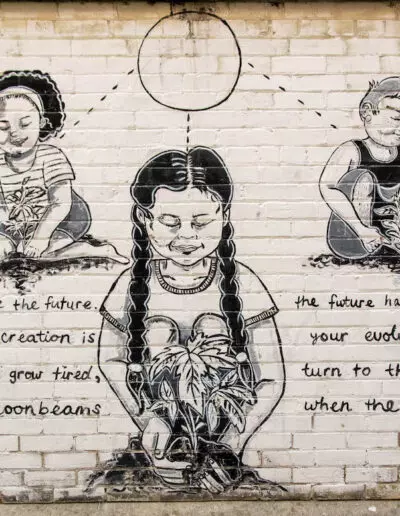 the future.
creation is
grow tired,
moonbeams
the future
your
turn to
when the